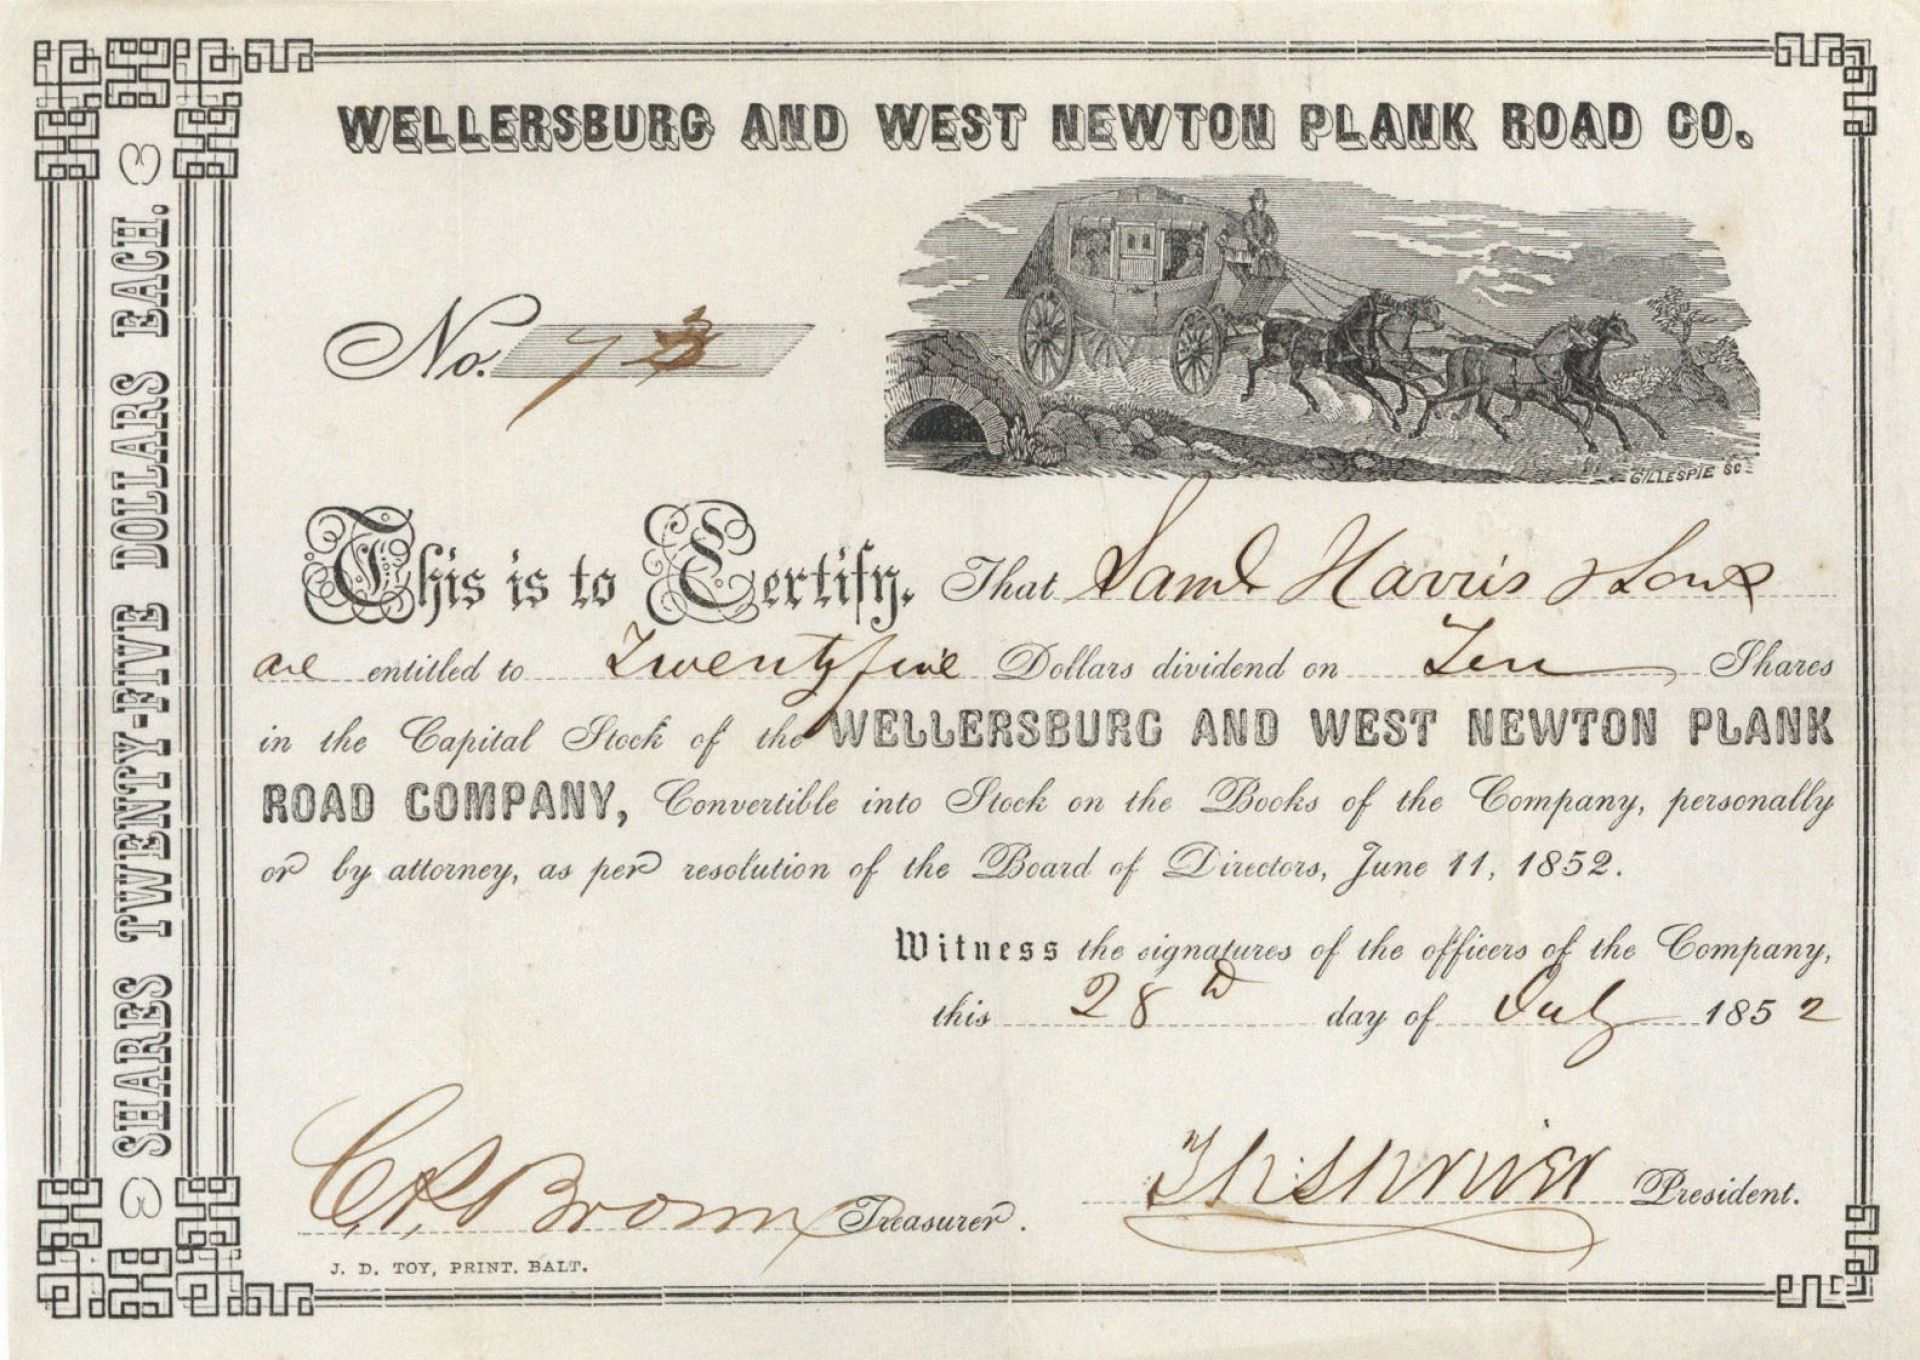 WELLERSBURG AND WEST NEWTON PLANK ROAD CO.
SHARES TWENTY-FIVE DOLLARS EACH.
No. 73
GILLESPIE SC
This is to Certify, That Saml Harris & Sons
are entitled to Twenty five Dollars dividend on Ten Shares
in the Capital Stock of the WELLERSBURG AND WEST NEWTON PLANK
ROAD COMPANY, Convertible into Stock on the Books of the Company, personally
or by attorney, as per resolution of the Board of Directors, June 11, 1852.
Witness the signatures of the officers of the Company,
this 28th day of July 1852
Brown Treasurer.
President.
J. D. TOY, PRINT. BALT.